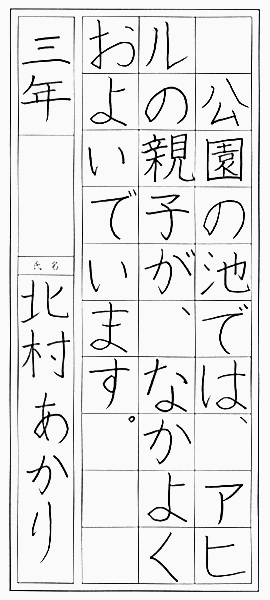 公園の池では、アヒ
ルの親子が、なかよく
およいでいます。
三年
氏名
北村あかり